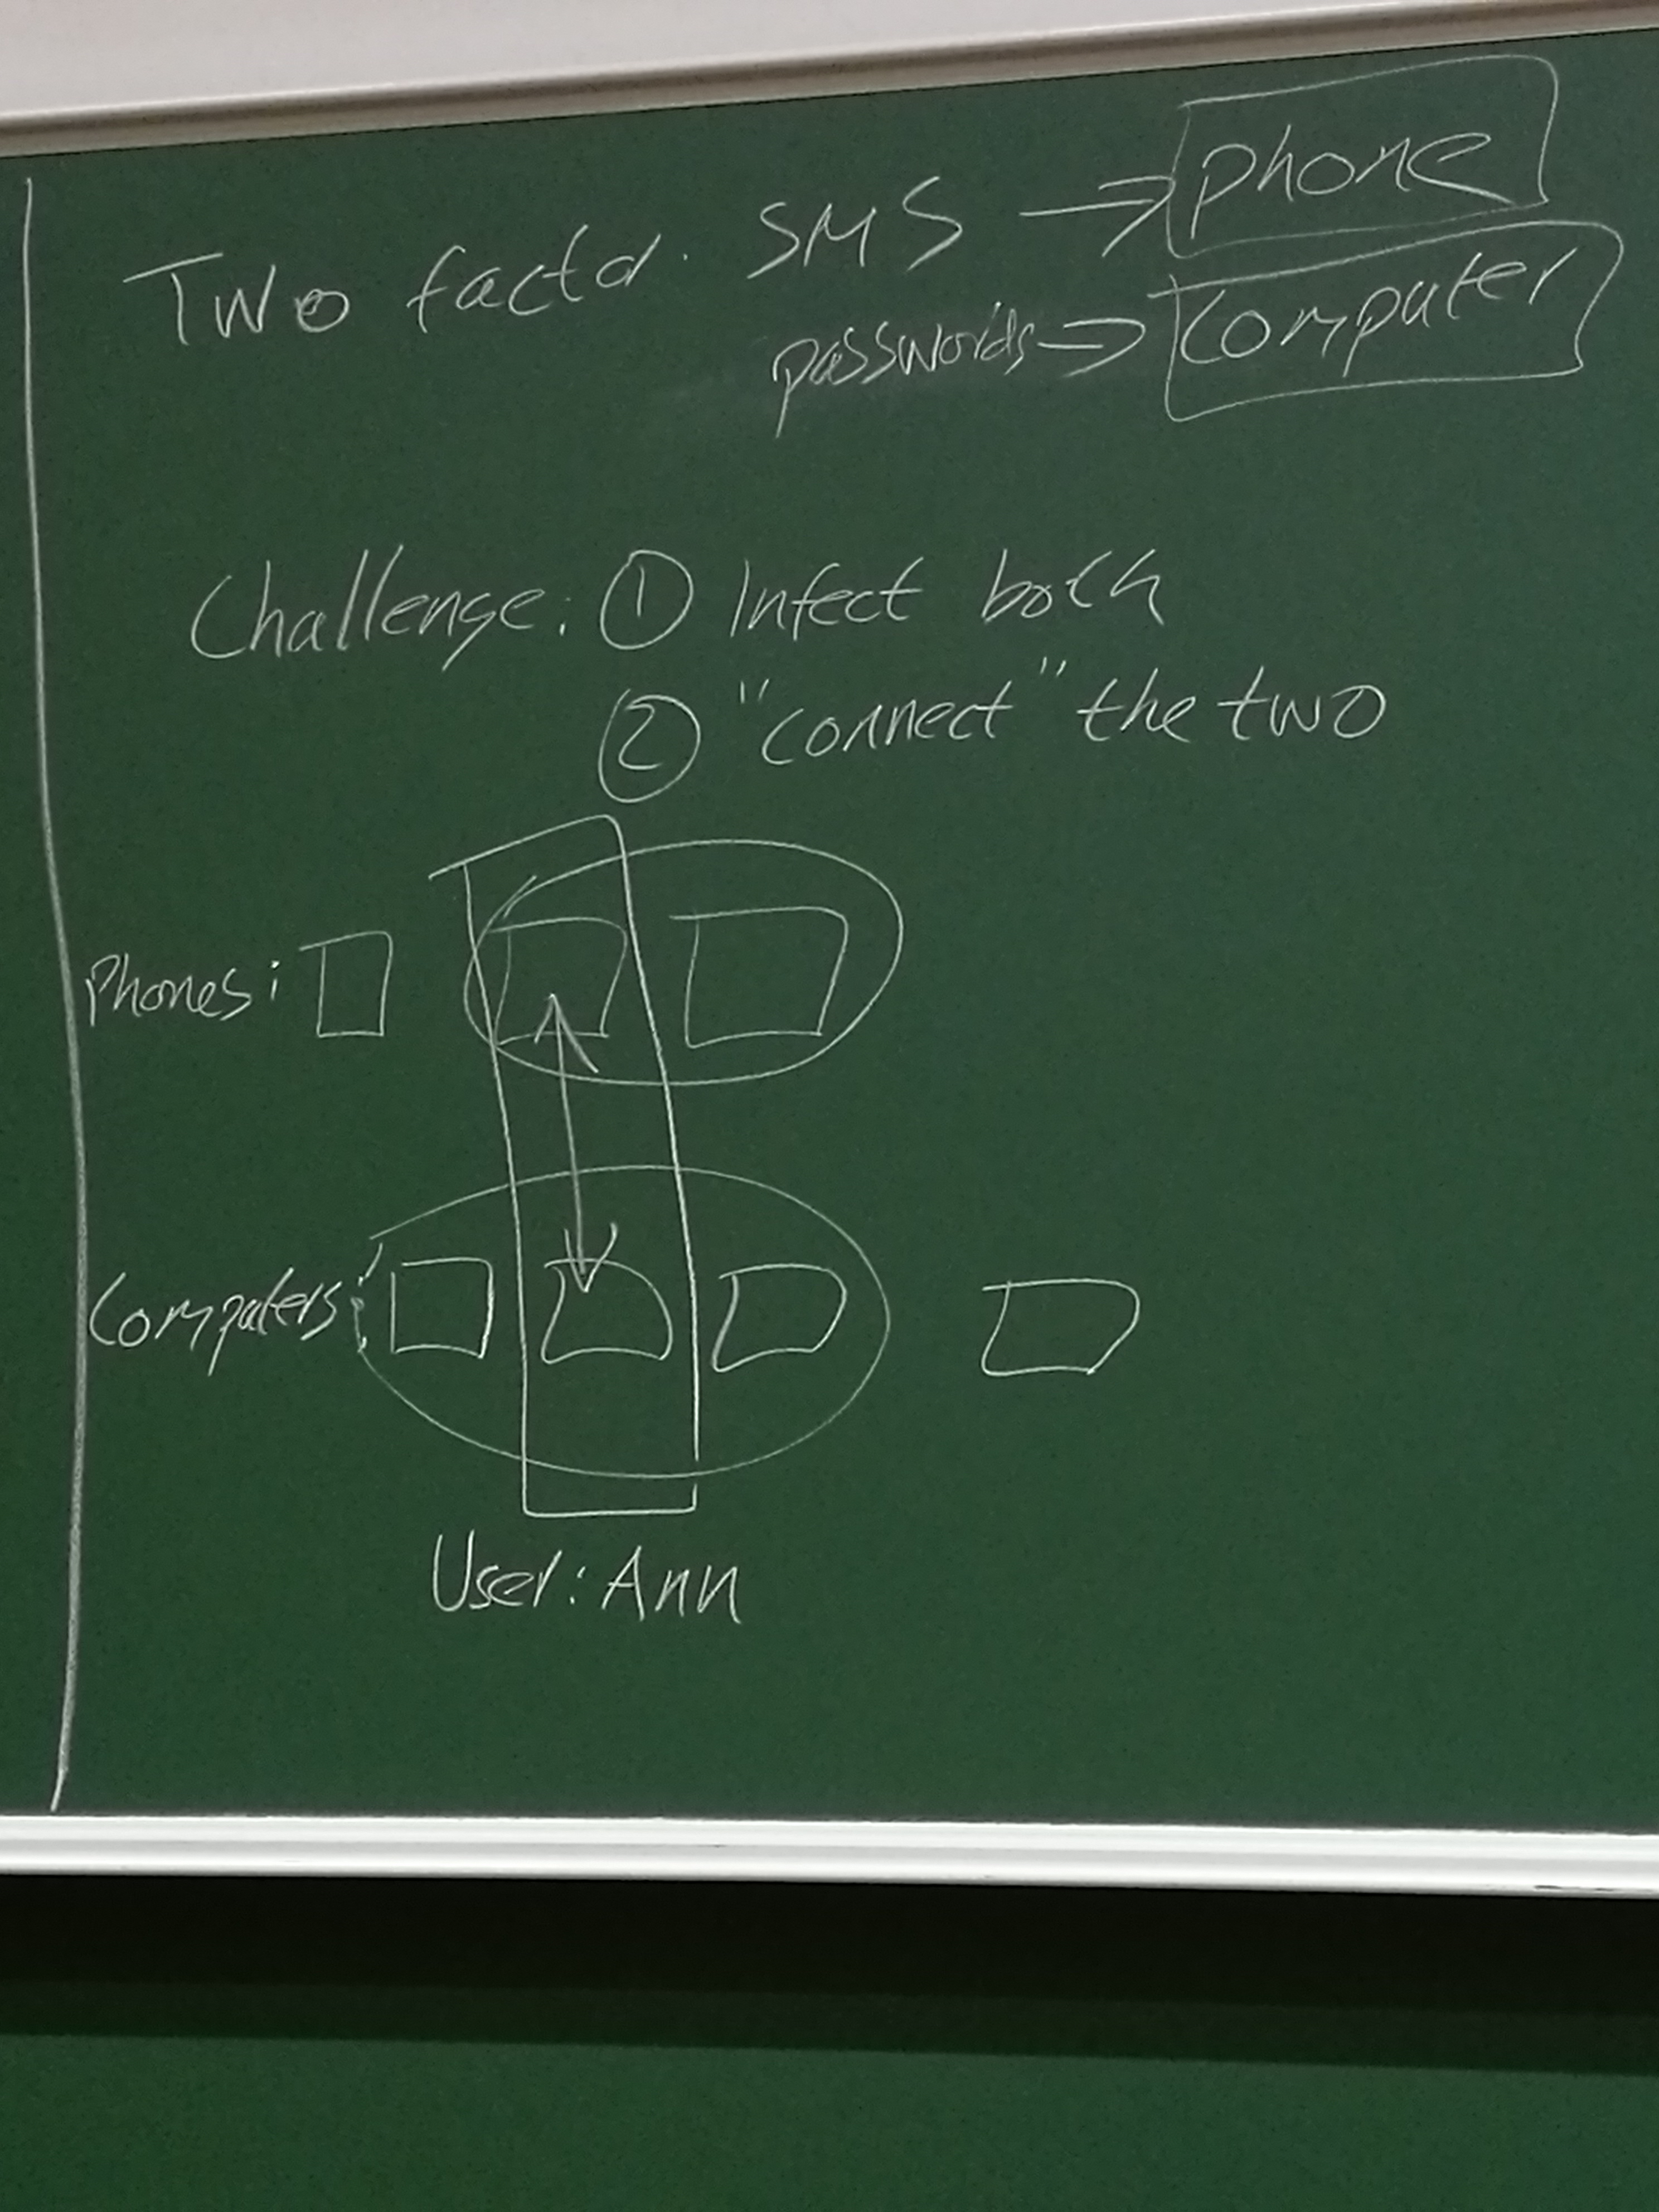 Two factor. SMS → phone
passwords → Computer
Challenge: ① Infect both
② "connect" the two
Phones:
Computers:
User: Ann